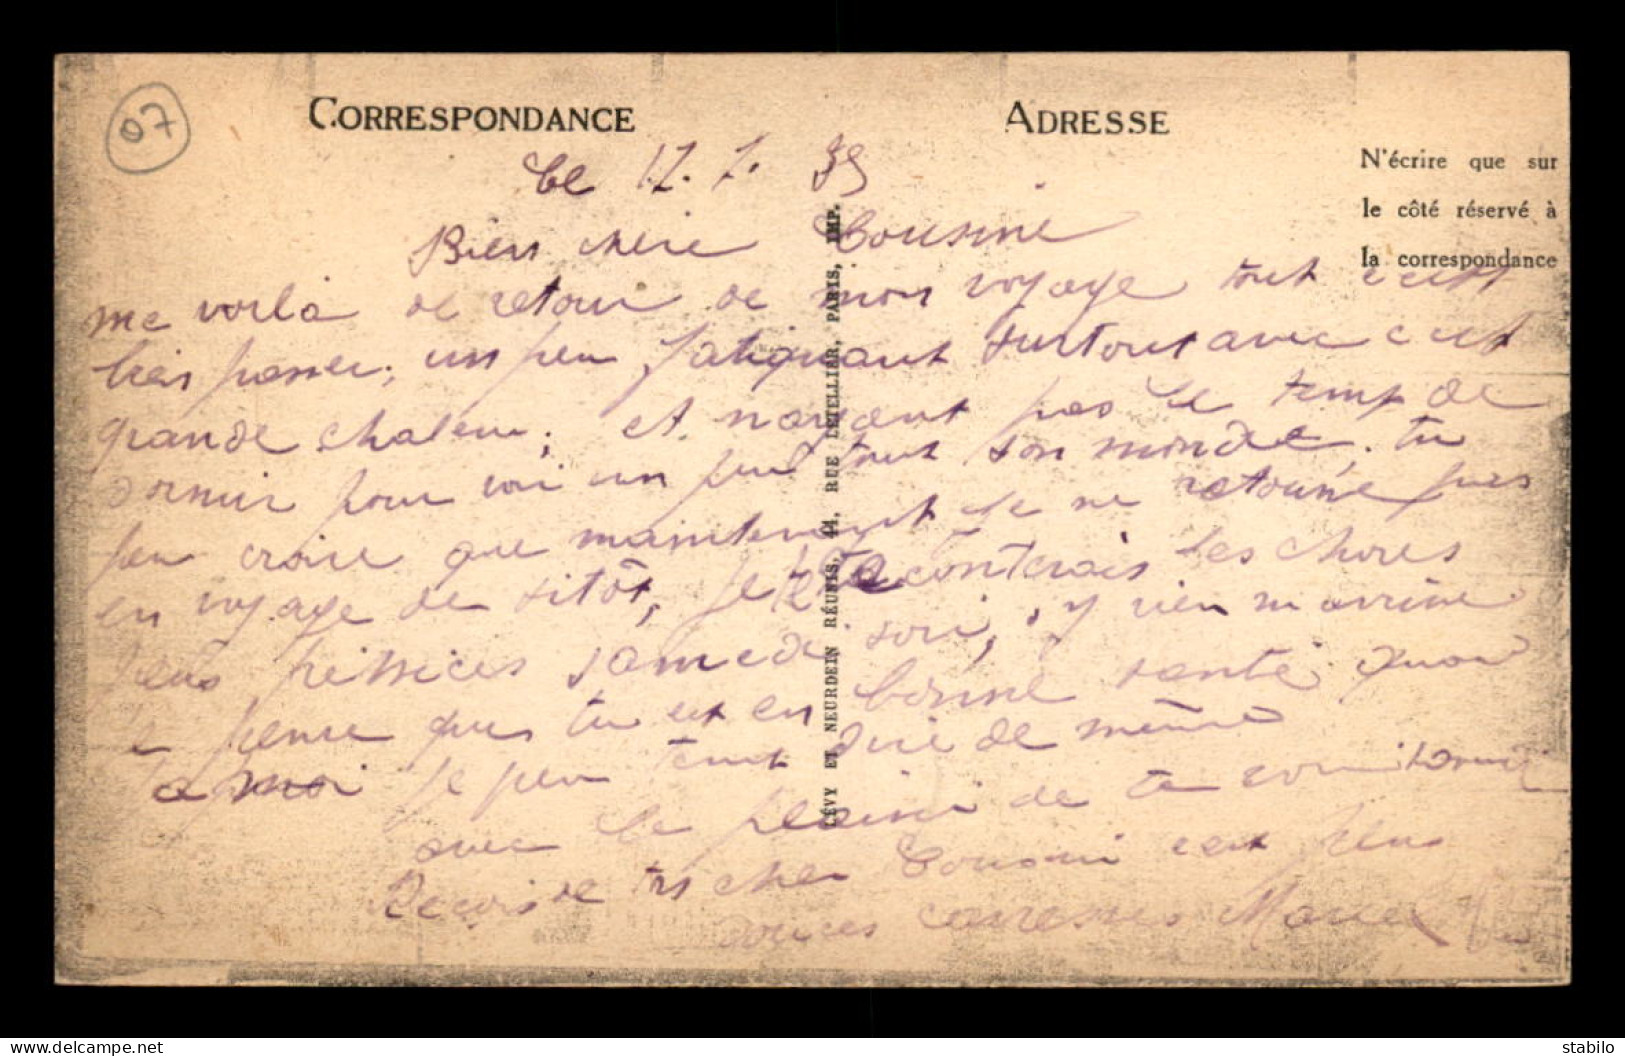 07
CORRESPONDANCE
ADRESSE
N'écrire que sur
le côté réservé à
la correspondance
LÉVY ET NEURDEIN RÉUNIS, 44, RUE LETELLIER, PARIS, IMP.
le 17.7.39
Bien chère Cousine
me voila de retour de mon voyage tout c'est
bien passer, un peu fatiguant surtout avec cest
grande chaleur, et nayant pas le temp de
dormir pour voir un peu tout son monde, tu
peu croire que maintenant je ne retourne pas
en voyage de sitôt, je te raconterais les choses
plus samedi soir, rien
je pense que tu est en bonne santé quand
a moi je peu tant dire de même
avec le plaisir de te
Reçois de ton cher Cousin cest plus
douces caresses Marcel
stabilo